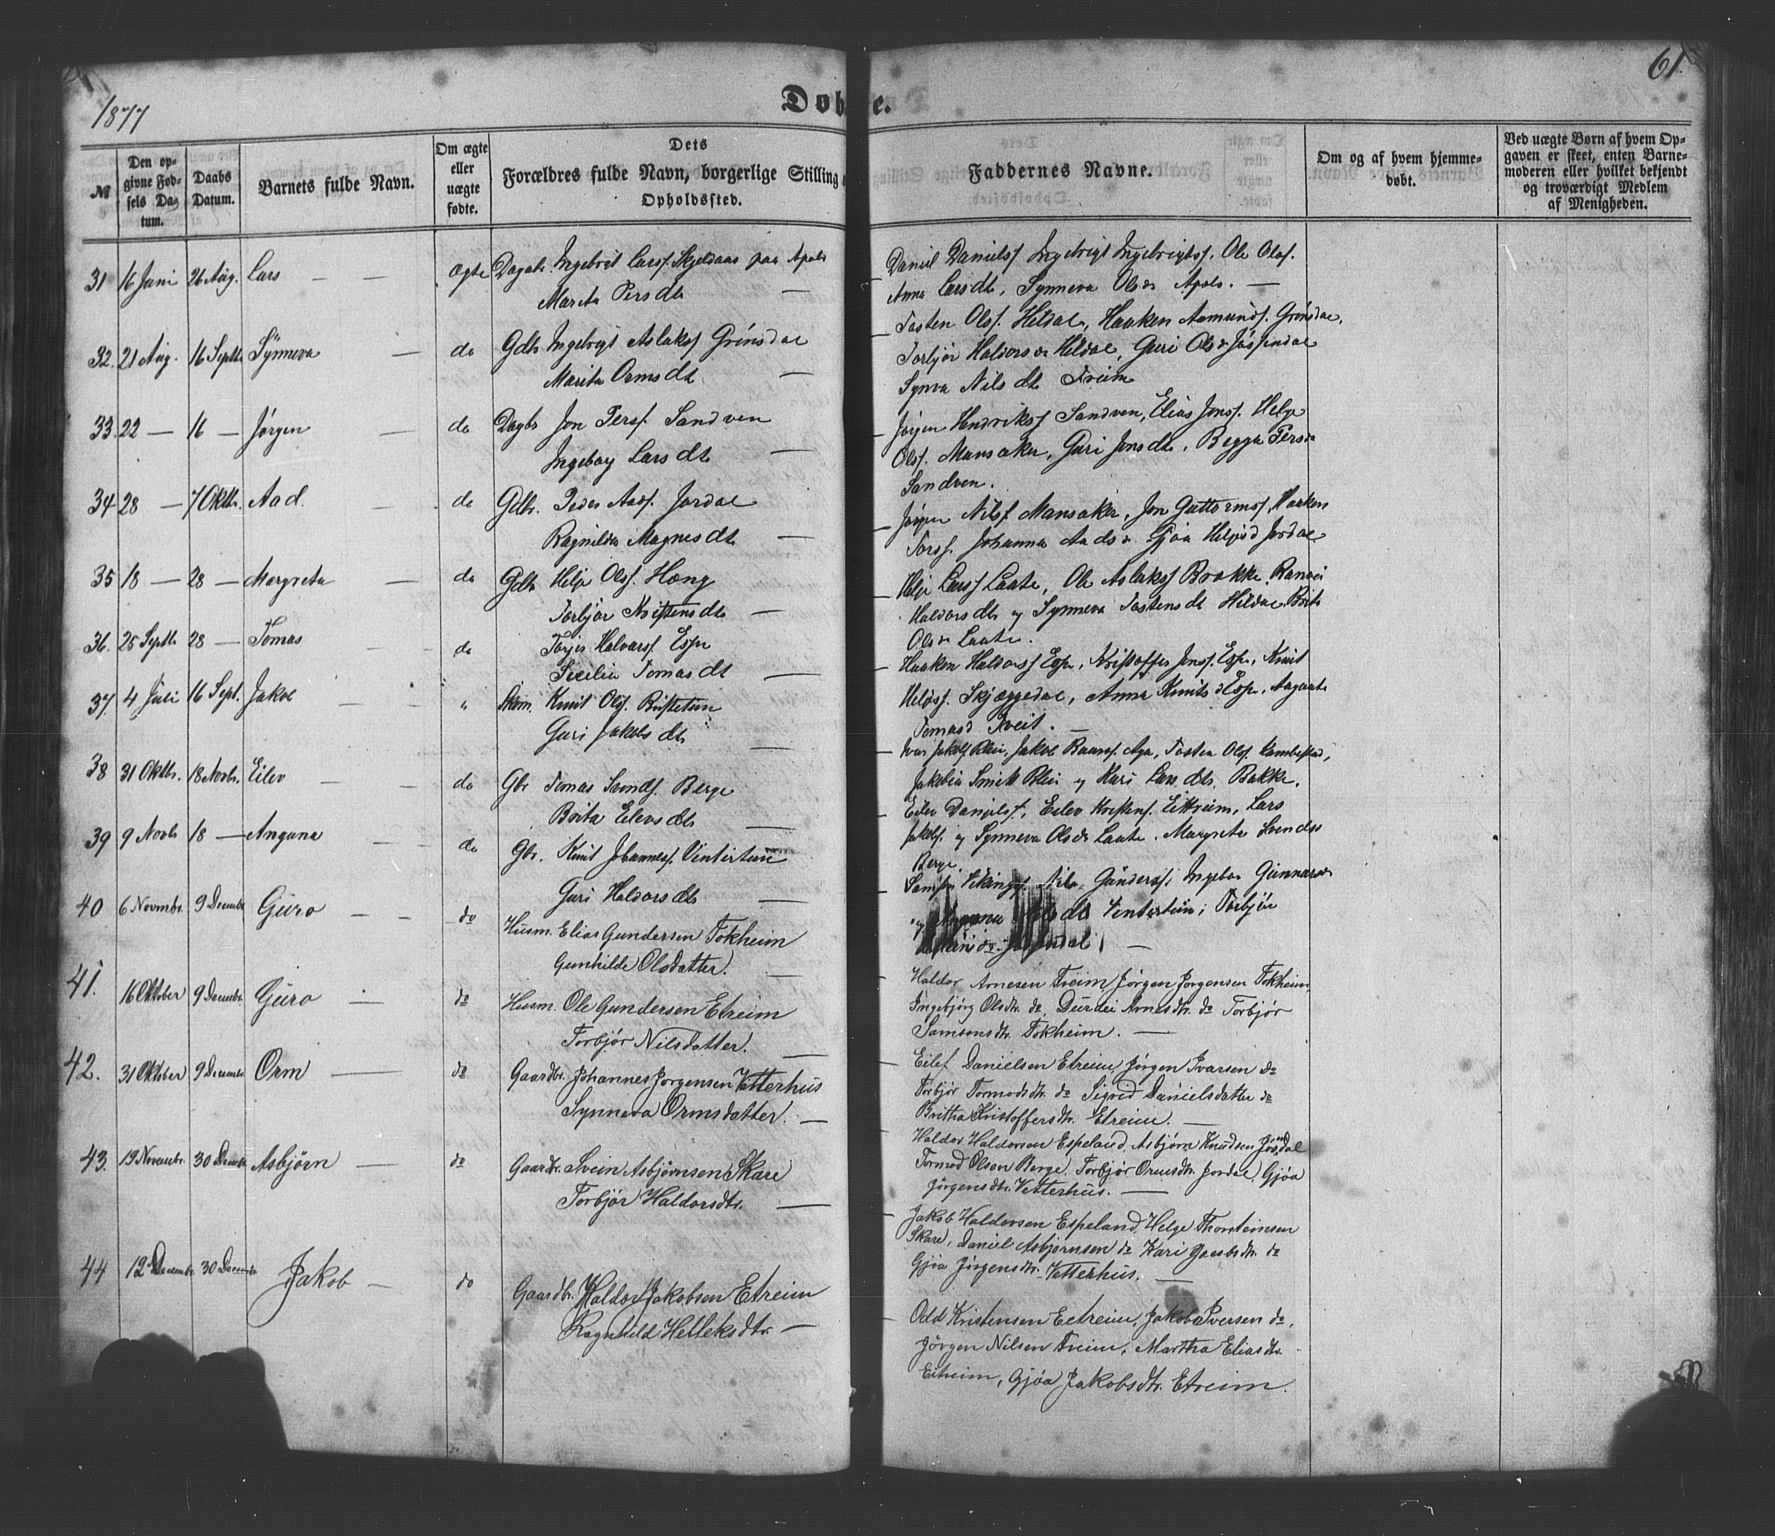 1877
Døbte.
61.
№
Den opgivne Fødsels Datum.
Daabs Datum.
Barnets fulde Navn.
Om ægte eller uægte fødte.
Dets Forældres fulde Navn, borgerlige Stilling
Opholdssted.
Faddernes Navne.
Om og af hvem hjemmedøbt.
Ved uægte Børn af hvem Opgaven er skeet, enten Barnemoderen eller hvilket bekjendt og troværdigt Medlem af Menigheden.
31 16 Juni 26 Aug. Lars — ægte Dagabr. Ingebrigt Larss. Skjeldaas paa Apold
Marita Persdtr —
Daniel Daniels. Ingebrigt Ingebrigts. Ole Ols.
Anna Larsdtr, Synneva Olsdr Apold. —
32. 21 Aug. 16 Septbr Synneva — do Gdbr Ingebrigt Aslaks. Grønsdal
Marita Ormsdtr —
Tosten Ols. Hildal, Haaken Aamunds. Grønsdal,
Torbjør Haldorsdr Hildal, Guri Olsdr Jøsendal
Synva Nilsdtr Freim
33. 22 — 16 — Jørgen — do Dagbr Jon Pers. Sandven
Ingebor Larsdtr —
Jørgen Hendriks. Sandven, Elias Jons. Helge
Ols. Mansaker, Guri Jonsdtr, Begga Persdr
Sandven.
34 28 — 7 Oktbr. Aad. — do Gdbr. Peder Aads. Jordal
Ragnilda Magnesdtr —
Jørgen Nils. Mansaker, Jon Guttorms. Haaken
Tors. Johanna Aadsdr Gjøa Helgesd Jordal
35 18 — 28 — Margreta — do Gdbr Helje Ols. Hæng
Torbjør Kristensdtr —
Helje Larss. Laate, Ole Aslaks. Brakke, Ranvei
Haldorsdtr og Synneva Tostensdtr Hildal, Brita
Olsdr Laate.
36. 25 Septbr 28 — Tomas do Torjer Halvors. Espe
Sicilia Tomasdtr —
Haaken Haldors. Espe, Kristoffer Jons. Espe, Knut
Heljes. Skjæggedal, Anna Knutsd Espe, Aagaate
Tomasd Tveit. —
37. 4 Juli 16 Sept. Jakob — " Skom. Knut Ols. Bustetun
Guri Jakobsdtr —
Ivar Jakobs. Blei, Jakob Baars. Aga, Tosten Ols. Kambestad,
Jakobia Smitt Blei og Kari Larsdtr. Bakke.
38 31 Oktbr. 18 Novbr. Eilev — do Gbr Tomas Samds. Berge
Brita Eilevsdtr —
Eilev Daniels. Eilev Kristens. Eitreim, Lars
Jakobs. og Synneva Olsdr Laate. Margreta Svendsdr
Berge
39 9 Novbr 18 — Anguna — do Gbr. Knut Johanness. Vintertun
Guri Haldorsdtr —
Sams. Vikings. Nils Gunders. Ingebor Gunnarsdr
og dtr Vintertun; Torbjør
40 6 Novmbr. 9 Decembr Guro — do Husm. Elias Gundersen Tokheim
Gunhilde Olsdatter. —
Haldor Arnesen Freim, Jørgen Jørgensen Tokheim,
Ingebjørg Olsdtr. do, Durdei Arnesdtr. do Torbjør
Samsonsdtr. Tokheim. —
41. 16 Oktober 9 Decembr. Guro — do Husm. Ole Gundersen Etreim
Torbjør Nilsdatter. —
Eilef Danielsen Etreim Jørgen Ivarsen do
Torbjør Tormodsdtr. do Sigrid Danielsdatter do
Britha Kristoffersdtr. Etreim. —
42. 31 Oktober 9 Decembr Orm — do Gaardbr. Johannes Jørgensen Vetterhus
Synneva Ormsdatter. —
Haldor Haldorsen Espeland, Asbjørn Knudsen Jøsendal
Tormod Olsen Berge, Torbjør Ormsdtr. Jordal, Gjøa
Jørgensdtr. Vetterhus. —
43. 19 Novembr. 30 Decmbr. Asbjørn — do Gaardbr. Svein Asbjørnsen Skare
Torbjør Haldorsdtr. —
Jakob Haldorsen Espeland, Helge Thorsteinsen
Skare, Daniel Asbjørnsen do Kari Jacobsdtr. do
Gjøa Jørgensdtr. Vetterhus. —
44 12 Decembr 30 Decembr Jakob — do Gaardbr. Haldor Jakobsen Etreim
Ragnhild Helleksdtr. —
Odd Kristensen Eetreim, Jakob Iversen do,
Jørgen Nilsen Freim, Martha Eliasdtr.
Eitreim, Gjøa Jakobsdtr. Etreim.